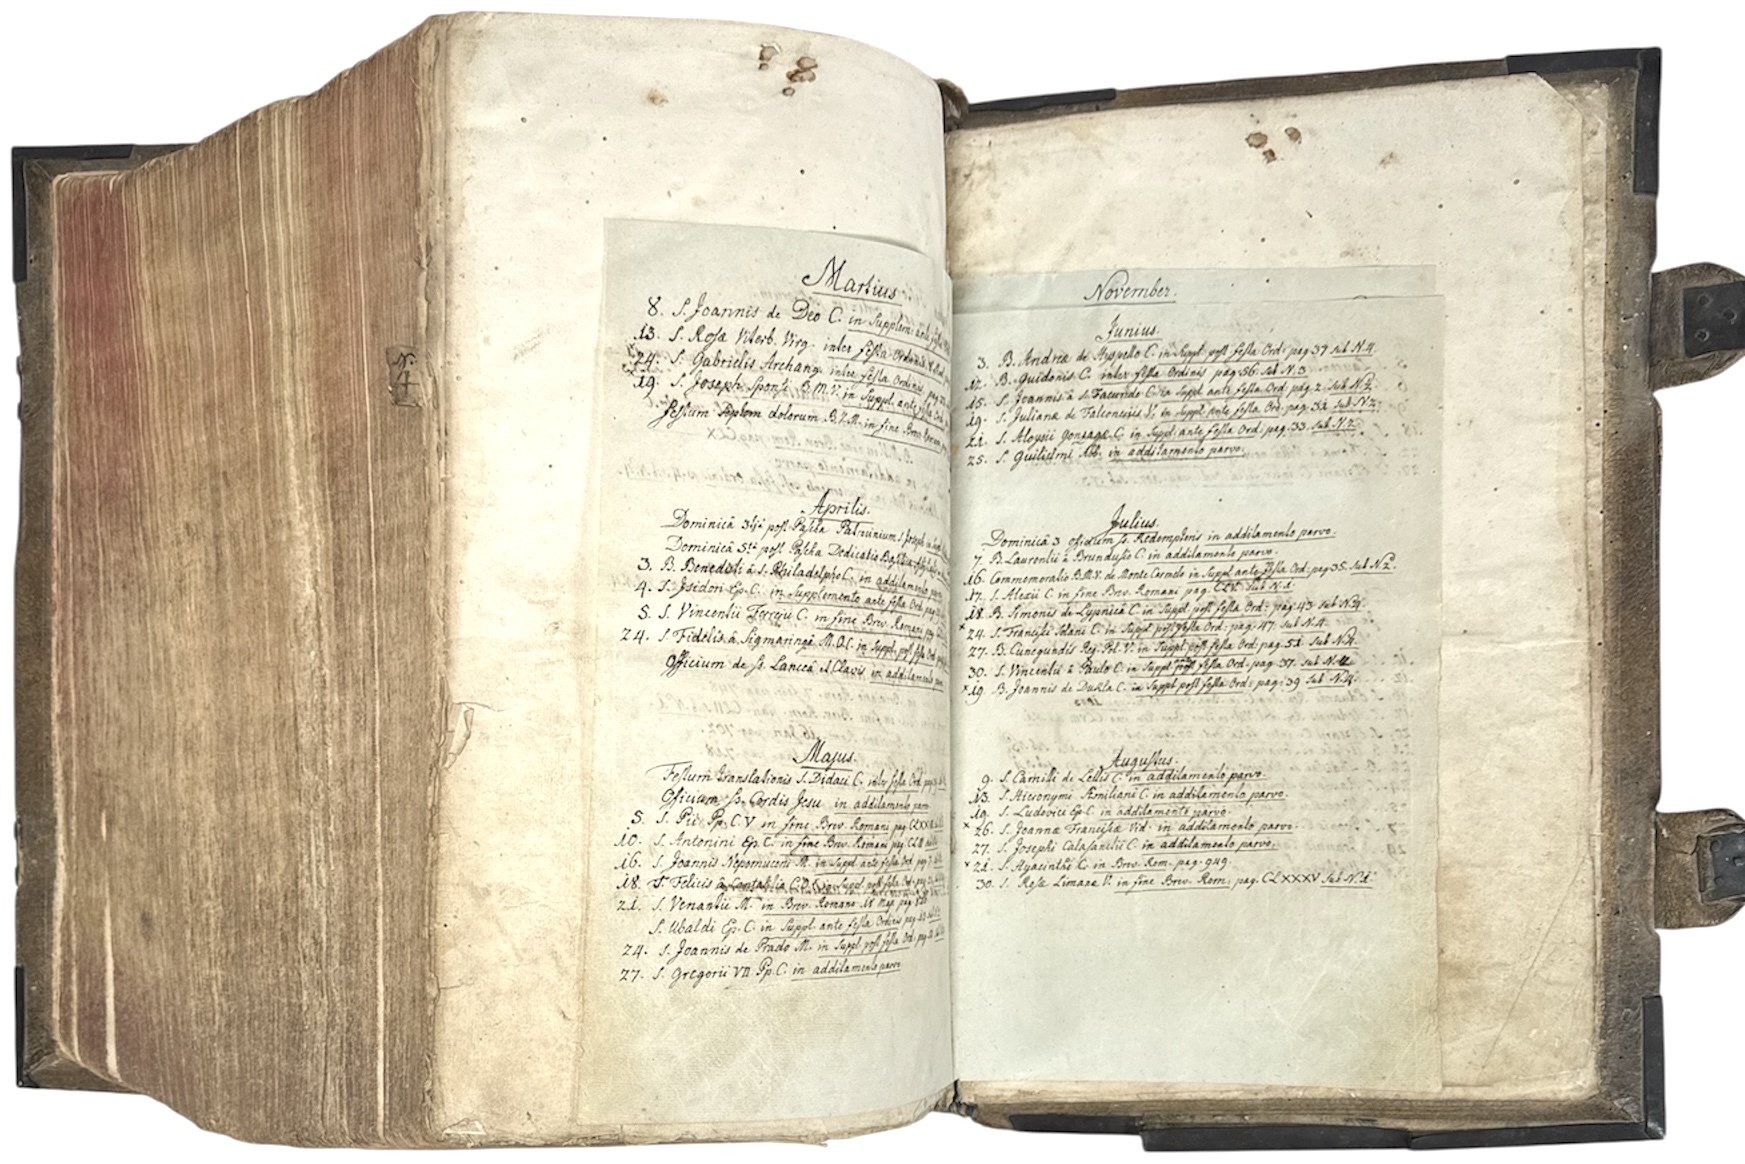 N. 4
Martius
8. S. Joannis de Deo C. in Supplem: ante festa
13. S. Rosæ Viterb. Virg. inter festa Ordinis
x 24. S. Gabrielis Archang. inter festa Ordinis pag.
x 19. S. Joseph Sponsi B.M.V. in Suppl. ante festa Ord.
Festum Septem dolorum B.V.M. in fine Brev. Rom.
Aprilis.
Dominicâ 3tjâ post Pascha Patrocinium S. Joseph in Suppl.
Dominicâ 5tâ post Pascha Dedicatio
3. B. Benedicti à S. Philadelpho C. in addilamento
4. S. Isidori Ep. C. in Supplemento ante festa Ord. pag.
5. S. Vincentii Ferrerij C. in fine Brev. Romani pag.
24. S. Fidelis â Sigmaringa M.O.C. in Suppl. post festa Ord.
Officium de SS. Lancea et Clavis in addilamento
Majus.
Festum translationis S. Didaci C. inter festa Ord.
Officium SS. Cordis Jesu in addilamento parv
5. S. Pii Pp. C. V in fine Brev. Romani pag. CLXXX
10. S. Antonini Ep. C. in fine Brev. Romani pag. CLII
16. S. Joannis Nepomuceni M. in Suppl. ante festa Ord. pag.
18. S. Felicis â Cantalitia C. O. C. in Suppl. post festa Ord. pag.
21. S. Venantii M. in Brev. Romano 18 Maji pag.
S. Ubaldi Ep. C. in Suppl. ante festa Ordinis pag. 13
24. S. Joannis de Prado M. in Suppl. post festa Ord. pag.
27. S. Gregorii VII Pp. C. in addilamento parvo
November.
Junius.
3. B. Andreæ de Hyspello C. in Suppl. post festa Ord: pag 37 sub N.4.
12. B. Guidonis C. inter festa Ordinis pag. 56. sub N.3.
15. S. Joannis â S. Facundo C. in Suppl. ante festa Ord. pag. 2. sub N.2.
19. S. Julianæ de Falconeriis V. in Suppl. ante festa Ord. pag. 31. sub N.2.
21. S. Aloysii Gonzagæ C. in Suppl. ante festa Ord: pag. 33. sub N.2.
25. S. Guilielmi Abb. in addilamento parvo.
Julius.
Dominicâ 3 officium SS. Redemptoris in addilamento parvo.
7. B. Laurentii â Brundusio C. in addilamento parvo.
16. Commemoratio B.M.V. de Monte Carmelo in Suppl. ante festa Ord: pag 35. sub N.2.
17. S. Alexii C. in fine Brev. Romani pag. sub N.1.
18. B. Simonis de Lypnica C. in Suppl. post festa Ord: pag. 43. sub N.4.
x 24. S. Francisci Solani C. in Suppl. post festa Ord: pag. 47. sub N.4.
27. B. Cunegundis Reg. Pol. V. in Suppl. post festa Ord: pag. 51. sub N.4.
30. S. Vincentii â Paulo C. in Suppl. post festa Ord: pag. 37. sub N.
x 19. B. Joannis de Dukla C. in Suppl. post festa Ord: pag. 39 sub N.4.
Augustus.
9. S. Camilli de Lellis C. in addilamento parvo.
13. S. Hieronymi Æmiliani C. in addilamento parvo.
19. S. Ludovici Ep. C. in addilamento parvo.
x 26. S. Joannæ Franciscæ Vid. in addilamento parvo.
27. S. Josephi Calasantii C. in addilamento parvo.
x 21. S. Hyacinthi C. in Brev. Rom. pag. 949.
30. S. Rosæ Limanæ V. in fine Brev. Rom: pag. CLXXXV sub N.1.